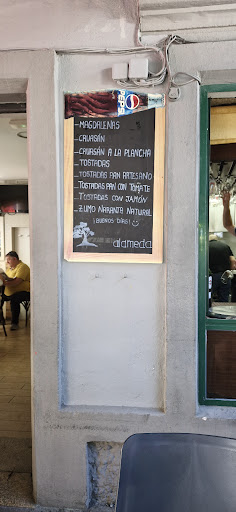 PEPSI
- MAGDALENAS
- CRUASÁN
- CRUASÁN A LA PLANCHA
- TOSTADAS
- TOSTADAS PAN ARTESANO
- TOSTADAS PAN CON TOMATE
- TOSTADAS CON JAMÓN
- ZUMO NARANJA NATURAL
¡BUENOS DÍAS!
alameda